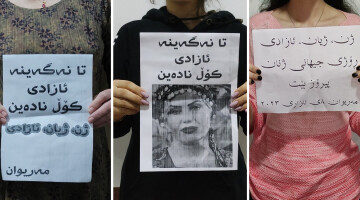 تا نەگەینە
ئازادی
کۆڵ نادەین
ژن ژیان ئازادی
مەریوان
تا نەگەینە
ئازادی
کۆڵ نادەین
ژن، ژیان، ئازادی
ڕۆژی جیهانی ژنان
پیرۆز بێت
مەریوان، ٨ی ئازاری ٢٠٢٣